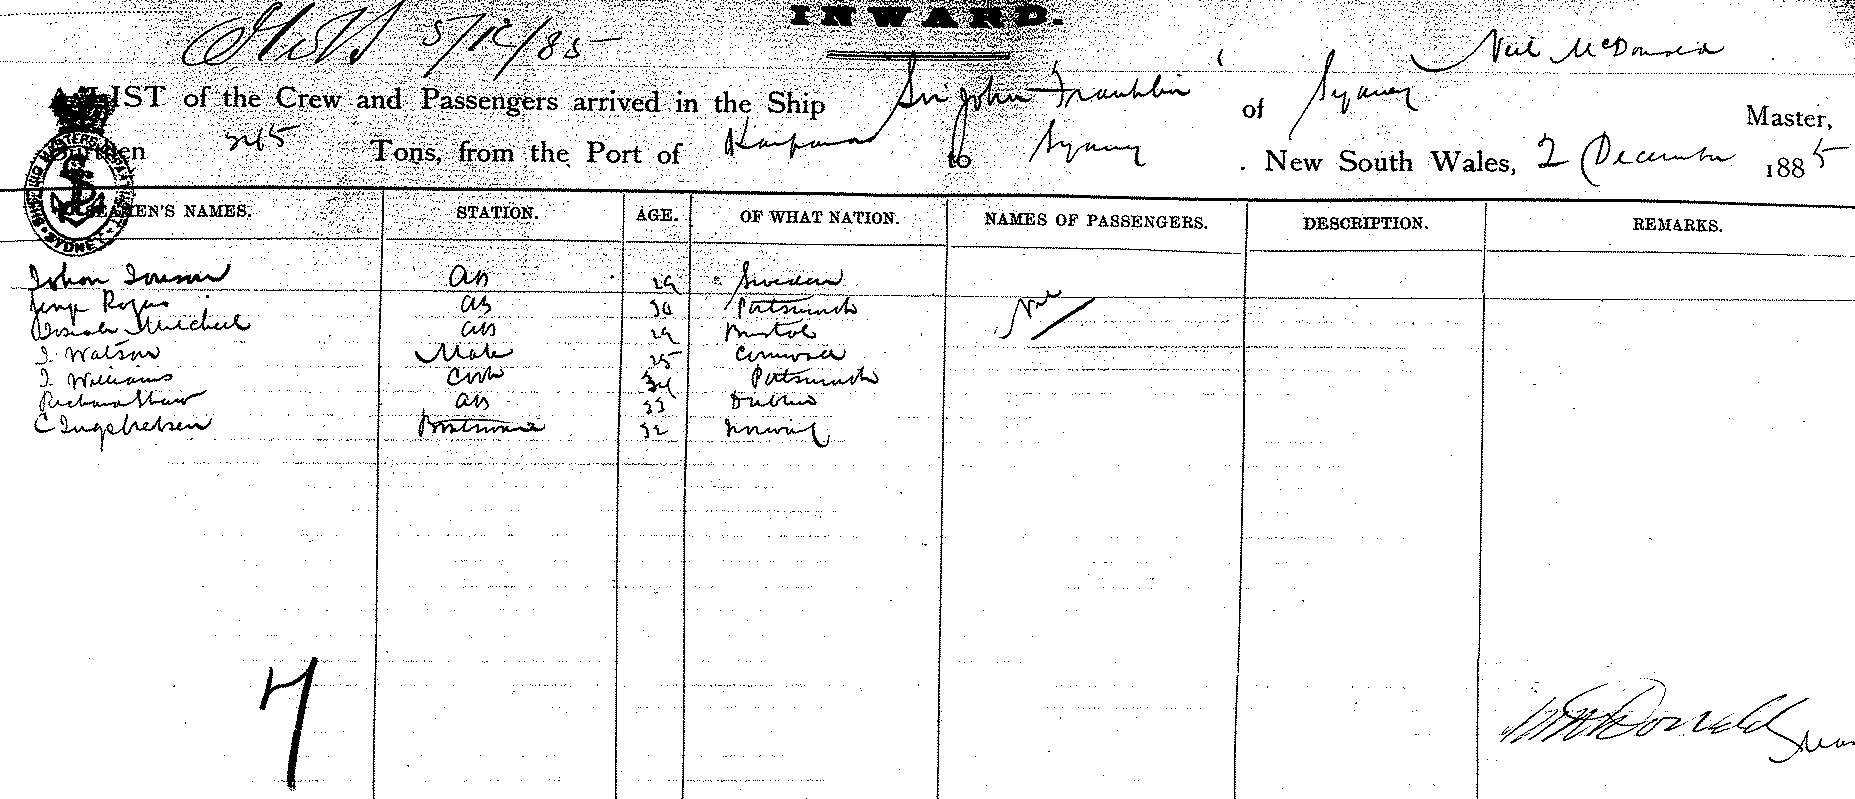 INWARD.
5/12/85
Neil McDonald
A LIST of the Crew and Passengers arrived in the Ship Sir John Franklin of Sydney Master,
Burthen 345 Tons, from the Port of Kaipara to Sydney. New South Wales, 2 December 1885
SEAMEN'S NAMES. STATION. AGE. OF WHAT NATION. NAMES OF PASSENGERS. DESCRIPTION. REMARKS.
SYDNEY
Johan AB 29 Sweden
Rogers AB 30 Portsmouth Nil
Mitchell AB 29 Bristol
J Watson Mate 25 Cornwall
J Williams Cook 34 Portsmouth
Richard Shaw AB 33 Dublin
C Ingebretsen Boatswain 32 Norway
7
N McDonald